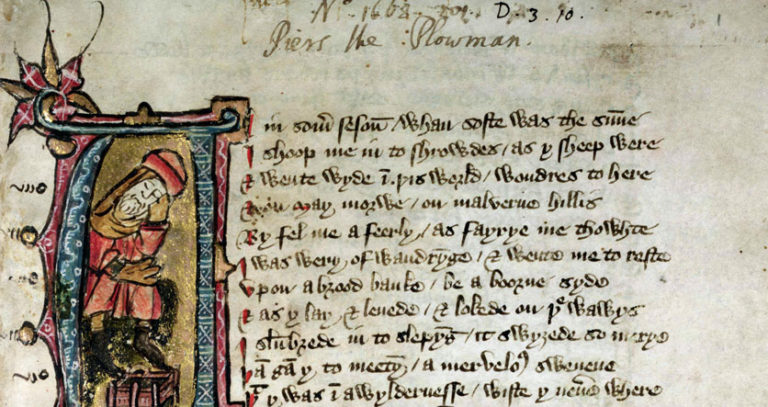 D. 3. 10.
Piers the Plowman.
in som̃ seson / whan softe was the sūne
I shoop me in to shrowdes / as y sheep were
& wente wyde ī þis world / wondres to here
may morwe / on malverne hillis
By fel me a feerly / as fayrye me thowhte
I was wery of wandryg̃e / & wente me to reste
vpon a brood banke / be a boorne syde
& as y lay / & lenede / & lokede on þe wawys
I slūbrede in to slepyg̃ / it swyzede so merye
gā y to meetyg̃ / a mervelo9 swevene
y was ī a wyldernesse / wiste y nevᵉ where